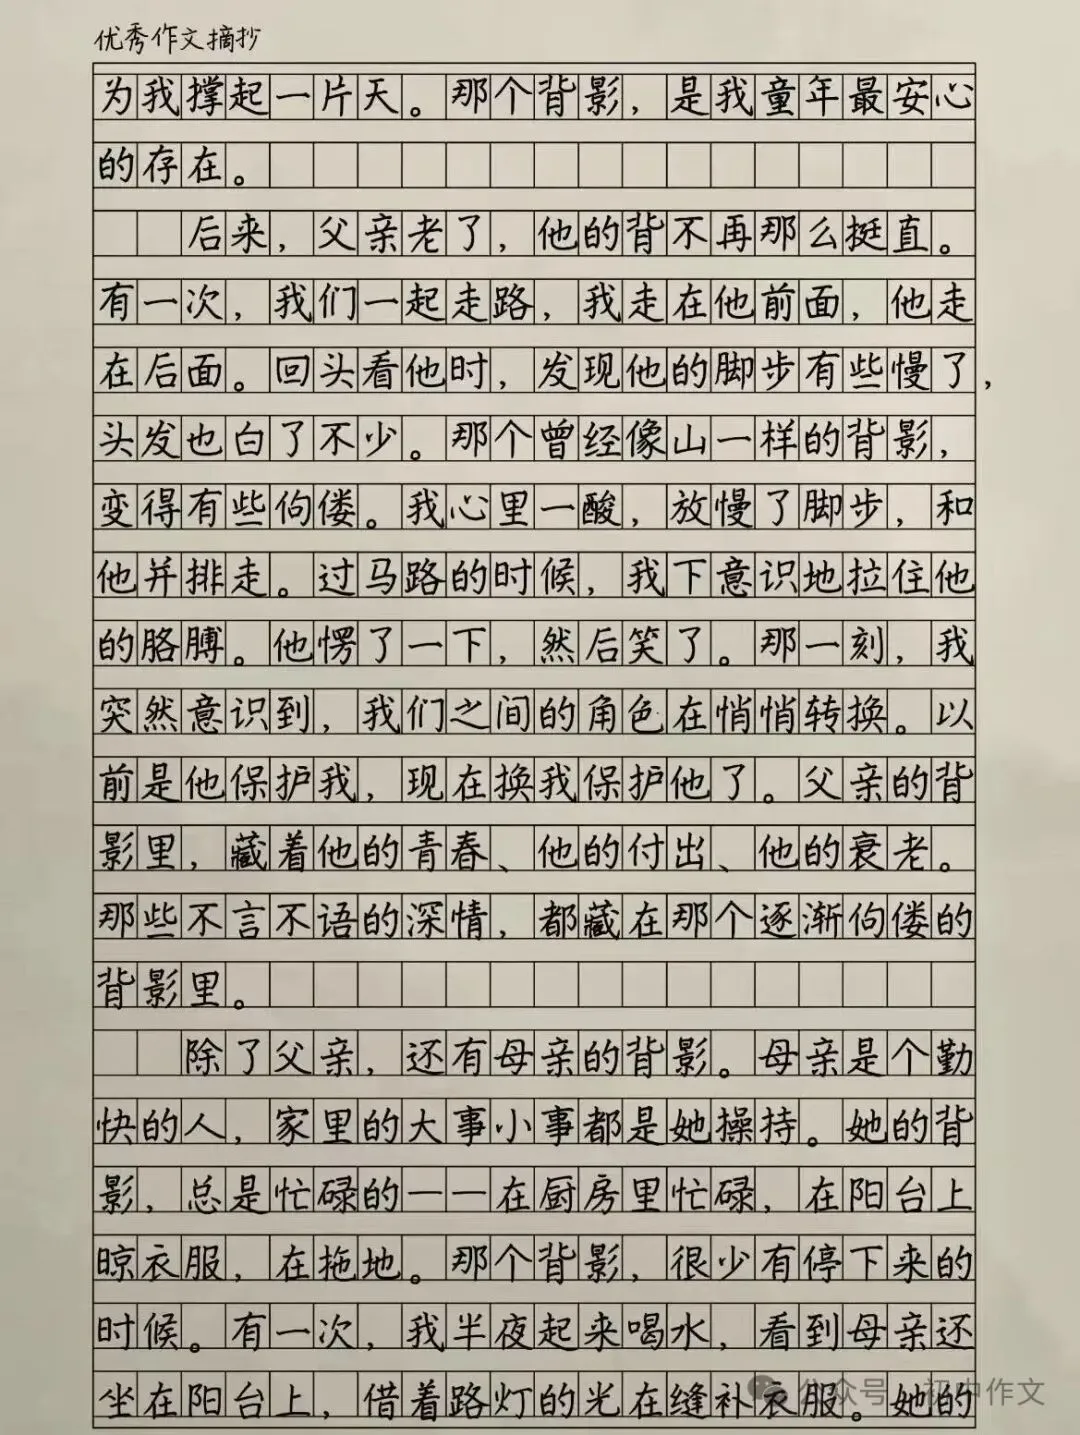 优秀作文摘抄
为我撑起一片天。那个背影，是我童年最安心
的存在。
后来，父亲老了，他的背不再那么挺直。
有一次，我们一起走路，我走在他前面，他走
在后面。回头看他时，发现他的脚步有些慢了，
头发也白了不少。那个曾经像山一样的背影，
变得有些佝偻。我心里一酸，放慢了脚步，和
他并排走。过马路的时候，我下意识地拉住他
的胳膊。他愣了一下，然后笑了。那一刻，我
突然意识到，我们之间的角色在悄悄转换。以
前是他保护我，现在换我保护他了。父亲的背
影里，藏着他的青春、他的付出、他的衰老。
那些不言不语的深情，都藏在那个逐渐佝偻的
背影里。
除了父亲，还有母亲的背影。母亲是个勤
快的人，家里的大事小事都是她操持。她的背
影，总是忙碌的——在厨房里忙碌，在阳台上
晾衣服，在拖地。那个背影，很少有停下来的
时候。有一次，我半夜起来喝水，看到母亲还
坐在阳台上，借着路灯的光在缝补衣服。她的
公众号 · 初中作文